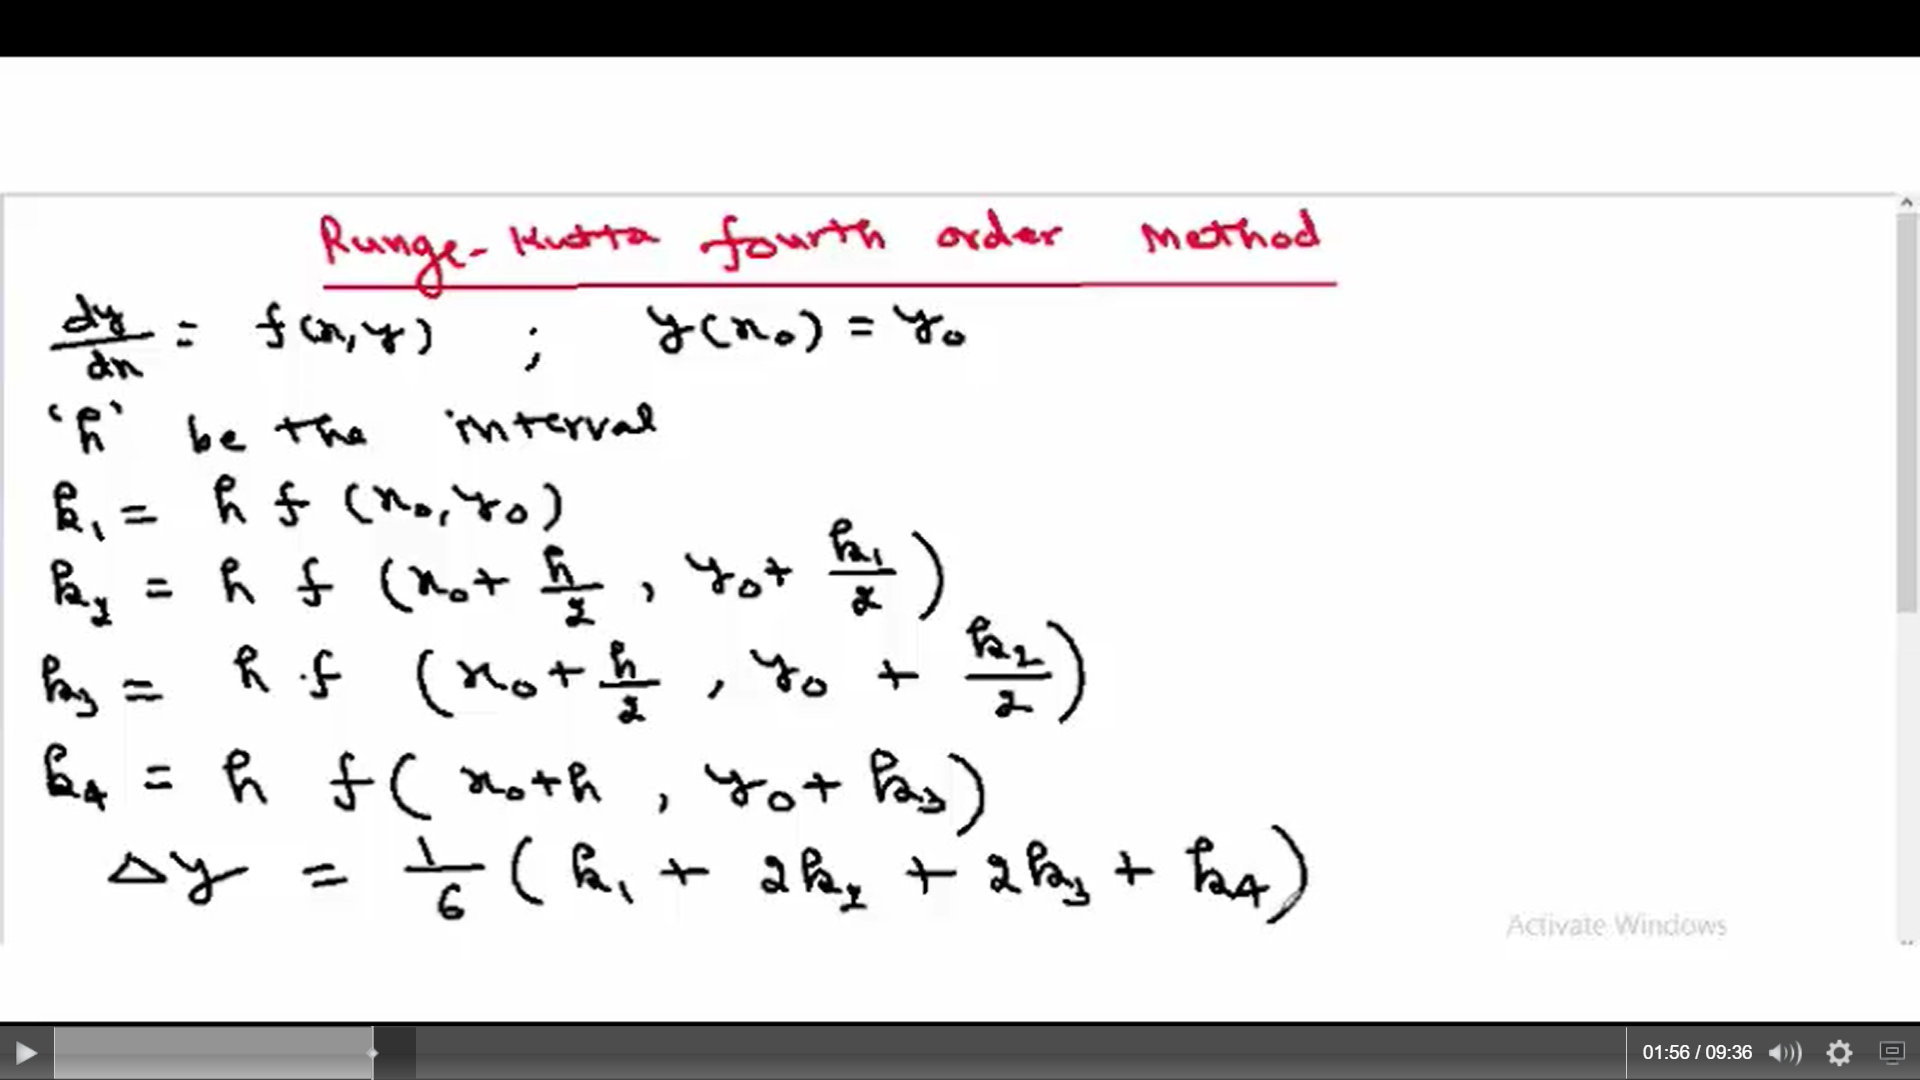 Runge-Kutta fourth order method
dy/dx = f(x, y) ; y(x₀) = y₀
'h' be the interval
k₁ = h f (x₀, y₀)
k₂ = h f (x₀ + h/2 , y₀ + k₁/2)
k₃ = h . f (x₀ + h/2 , y₀ + k₂/2)
k₄ = h f( x₀+h , y₀+ k₃)
Δy = 1/6 ( k₁ + 2k₂ + 2k₃ + k₄)
Activate Windows
01:56 / 09:36